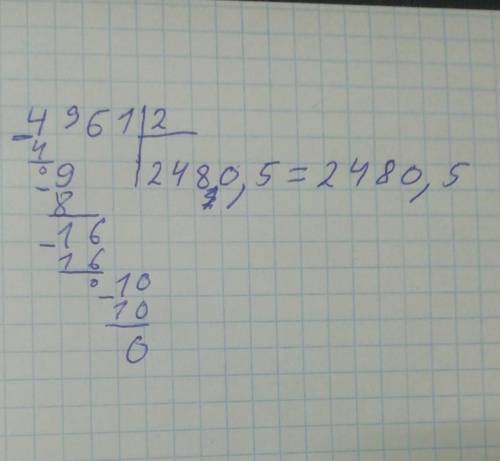 -4961|2
4
0
-9 2480,5=2480,5
8
-16
16
0
-10
10
0